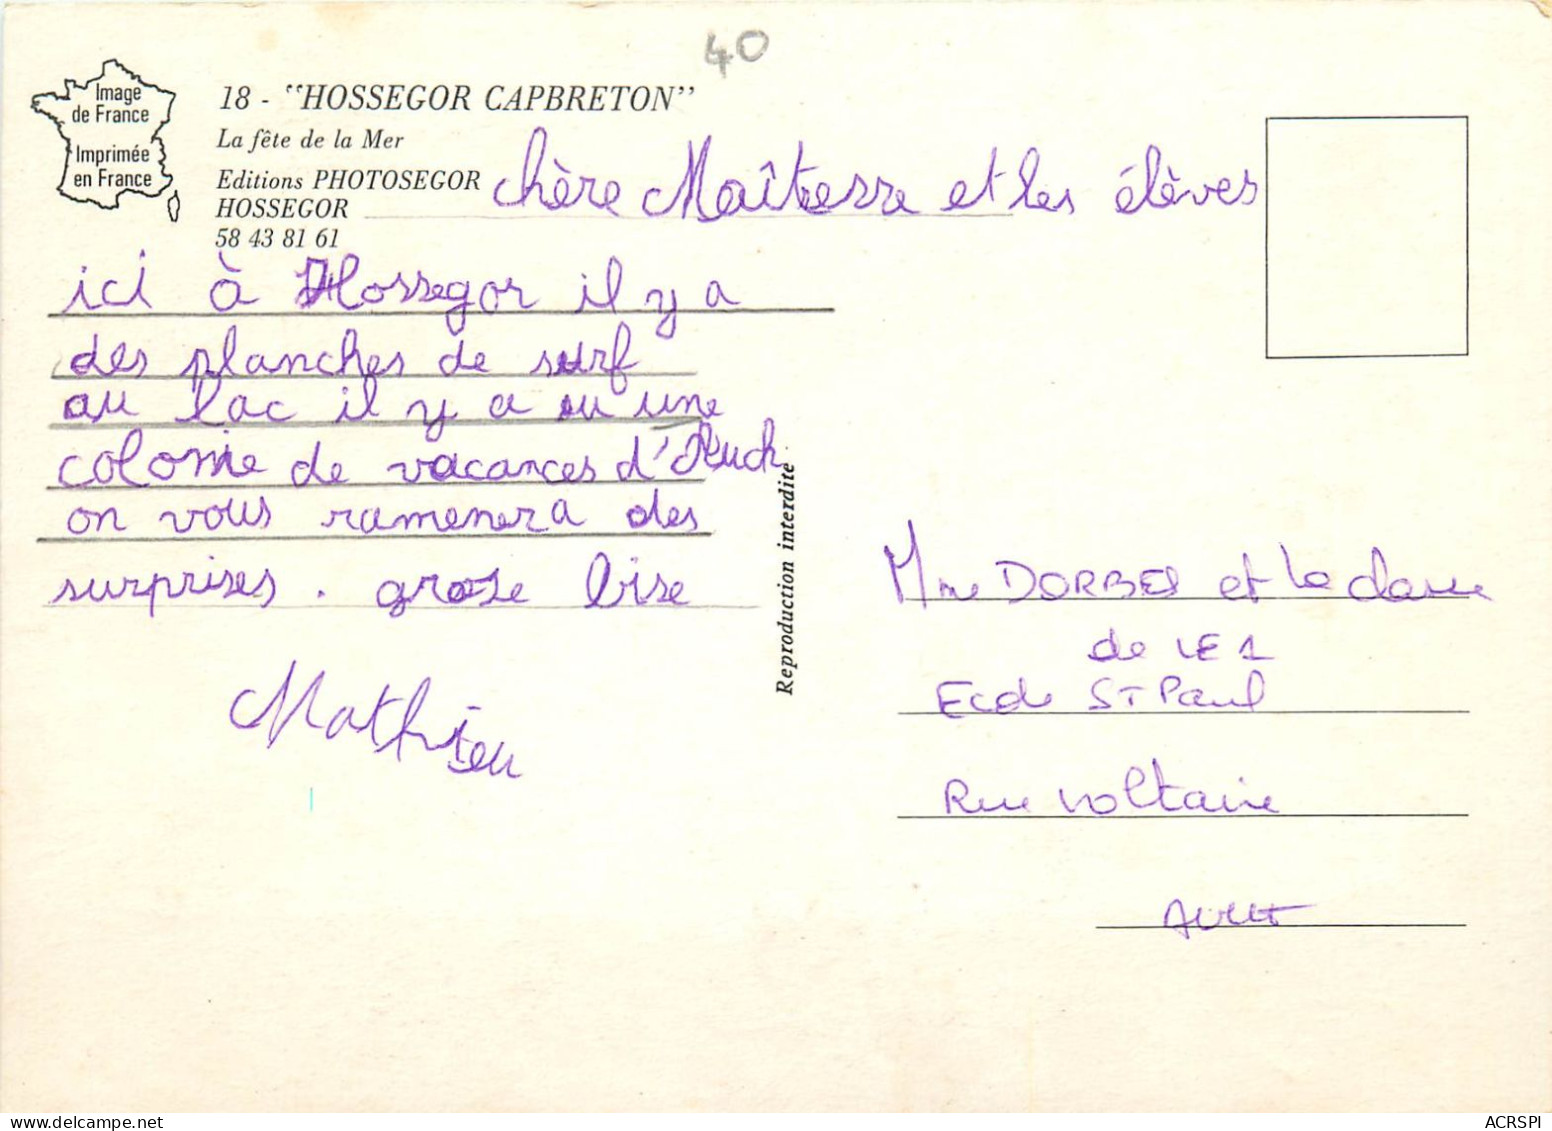 40
Image
de France
Imprimée
en France
18 - "HOSSEGOR CAPBRETON"
La fête de la Mer
Editions PHOTOSEGOR
HOSSEGOR
58 43 81 61
chère Maîtesse et les élèves
ici à Hossegor il y a
des planches de surf
au lac il y a ou une
colonie de vacances d'Auch
on vous ramenera des
surprises . grose bise
Mathieu
Reproduction interdite
Mme DORBES et la classe
de CE1
Ecole ST Paul
Rue Voltaire
AUCH
ACRSPI